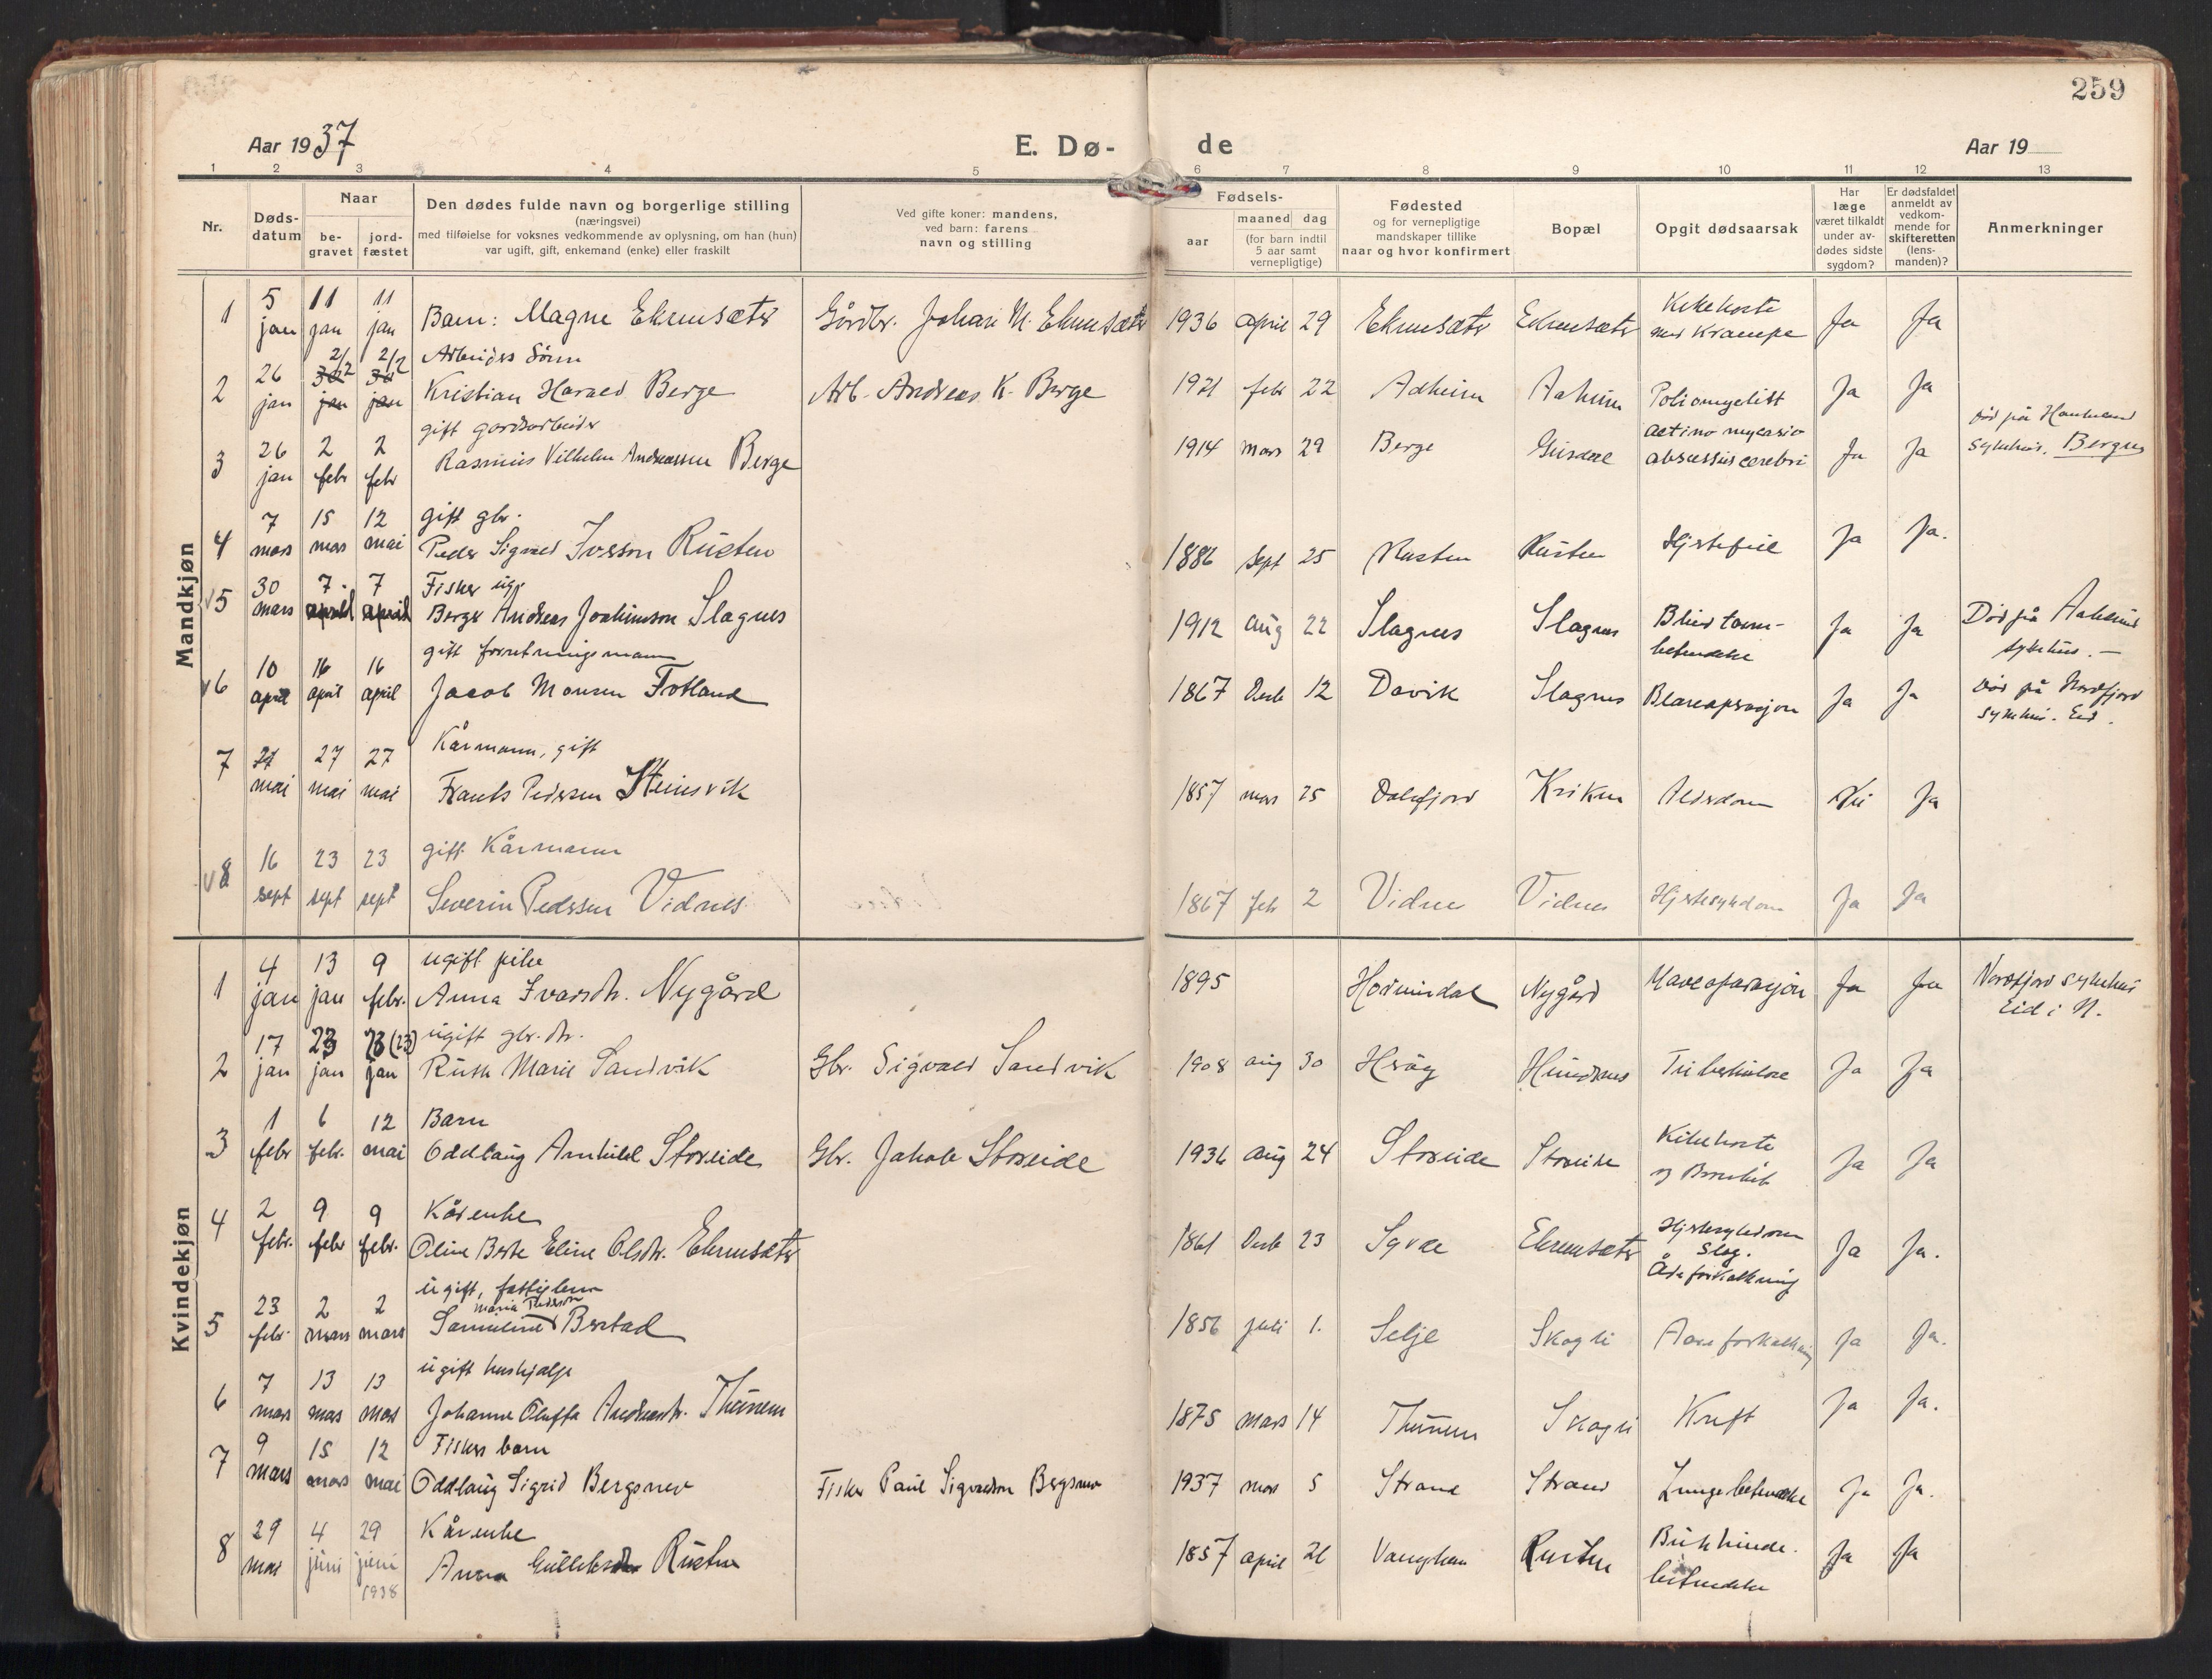 259
Aar 1937
E. Dø-
de
Aar 19
1 2 3 4 5 6 7 8 9 10 11 12 13
Nr.
Døds-
datum
Naar
be-
gravet
jord-
fæstet
Den dødes fulde navn og borgerlige stilling
(næringsvei)
med tilføielse for voksnes vedkommende av oplysning, om han (hun)
var ugift, gift, enkemand (enke) eller fraskilt
Ved gifte koner: mandens,
ved barn: farens
navn og stilling
Fødsels-
aar
maaned dag
(for barn indtil
5 aar samt
vernepligtige)
Fødested
og for vernepligtige
mandskaper tillike
naar og hvor konfirmert
Bopæl
Opgit dødsaarsak
Har
læge
været tilkaldt
under av-
dødes sidste
sygdom?
Er dødsfaldet
anmeldt av
vedkom-
mende for
skifteretten
(lens-
manden)?
Anmerkninger
Mandkjøn
1 5 jan 11 jan 11 jan Barn: Magne Ekremsæter Gårdbr. Johan N. Ekremsæter 1936 april 29 Ekremsæter Ekremsæter Kikehoste med Krampe Ja Ja
Arbeiders Sønn
2 26 jan 2/2 30 jan 2/2 30 jan Kristian Harald Berge Arb. Andreas K. Berge 1921 febr 22 Aaheim Aaheim Poliomyelitt Ja Ja
gift gardsarbeider
3 26 jan 2 febr 2 febr Rasmus Vilhelm Andreassen Berge 1914 mars 29 Berge Gusdal actinomycasis abscessus cerebri Ja Ja Død på Haukeland sykehus. Bergen
gift gbr.
4 7 mars 15 mars 12 mai Peder Sigvald Iversen Rusten 1886 sept 25 Rusten Rusten Hjertefeil Ja Ja.
Fisker ug.
5 30 mars 7 april 7 april Berger Andreas Joakimson Slagnes 1912 aug 22 Slagnes Slagnes Blindtarm-betendelse Ja Ja Død på Aalesund sykehus. —
gift forretningsmann
6 10 april 16 april 16 april Jacob Monsen Fotland 1867 Desb 12 Davik Slagnes Blæreoperasjon Ja Ja Død på Nordfjord sykehus. Eid.
Kårmann, gift
7 mai 27 mai 27 mai Frants Pedersen Steinsvik 1857 mars 25 Dalsfjord Kriken Alderdom Nei Ja
gift Kårmann
8 16 sept 23 sept 23 sept Severin Pedersen Vidnes 1867 feb 2 Vidnes Vidnes Hjertesykdom Ja Ja
Kvindekjøn
ugift pike
1 4 jan 13 jan 9 febr. Anna Ivarsdtr. Nygård 1895 Hornindal Nygård Maveoperasjon Ja Ja Nordfjord sykehus Eid i N.
ugift gbr. dtr.
2 17 jan 23 jan 23 (23) jan Ruth Marie Sandvik Gbr. Sigvald Sandvik 1908 aug 30 Hundsnes Tuberkulose Ja Ja
Barn
3 1 febr 6 febr. 12 mai Oddlaug Arnhild Storeide Gbr. Jakob Storeide 1936 aug 24 Storeide Storeide Kikehoste og Bronkit Ja Ja
Kårenke
4 2 febr. 9 febr 9 febr. Oline Berte Eline Olsdtr. Ekremsæter 1861 Desb 23 Syvde Ekremsæter Hjertesykdom Slag. Åreforkalkning Ja Ja.
ugift, fattiglem
5 23 febr. 2 mars 2 mars Samuline Maria Pedersen Berstad 1856 juli 1. Selje Skogli Aareforkalkning Ja Ja.
ugift hushjelp
6 7 mars 13 mars 13 mars Johanne Oluffa Andreasdtr. Thunem 1875 mars 14 Thunem Skogli Kreft Ja Ja.
Fiskers barn
7 9 mars 15 mars 12 mai Oddlaug Sigrid Bergsnev Fisker Paul Sigvaldson Bergsnev 1937 mars 5 Strand Strand Lungebetendelse Ja Ja.
Kårenke
8 29 mai 4 juni 29 juni 1938 Anna Gulleksdtr Rusten 1857 april 26 Rusten Bukhinde-betendelse Ja Ja